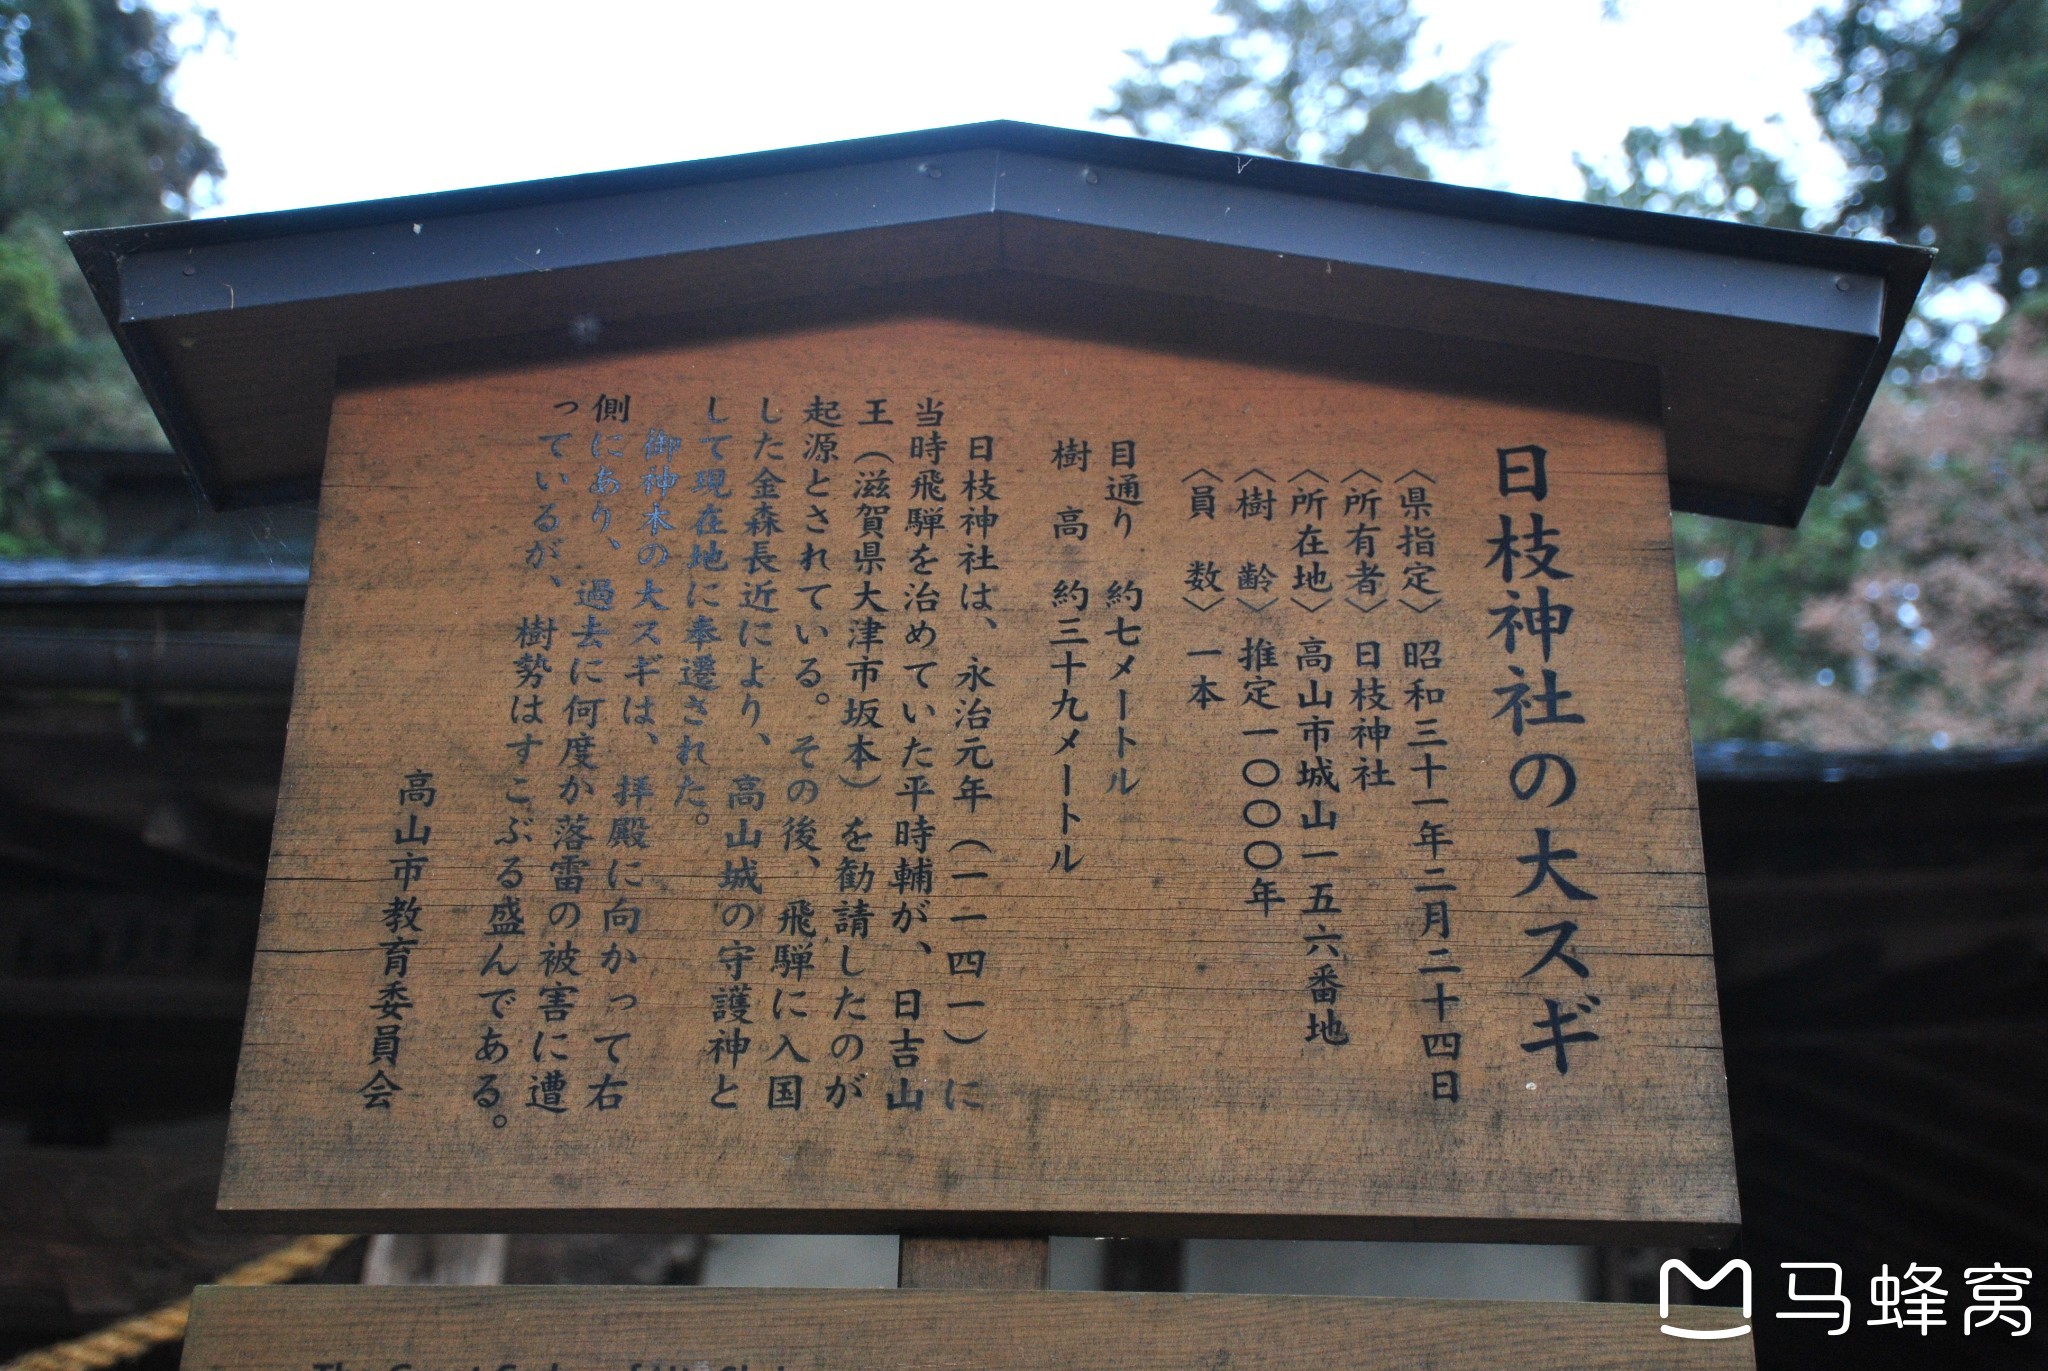 日枝神社の大スギ
〈県指定〉昭和三十一年二月二十四日
〈所有者〉日枝神社
〈所在地〉高山市城山一五六番地
〈樹 齢〉推定一〇〇〇年
〈員 数〉一本
目通り 約七メートル
樹 高 約三十九メートル
日枝神社は、永治元年（一一四一）に
当時飛騨を治めていた平時輔が、日吉山
王（滋賀県大津市坂本）を勧請したのが
起源とされている。その後、飛騨に入国
した金森長近により、高山城の守護神と
して現在地に奉遷された。
御神木の大スギは、拝殿に向かって右
側にあり、過去に何度か落雷の被害に遭
っているが、樹勢はすこぶる盛んである。
高山市教育委員会
The Great Cedar of
马蜂窝